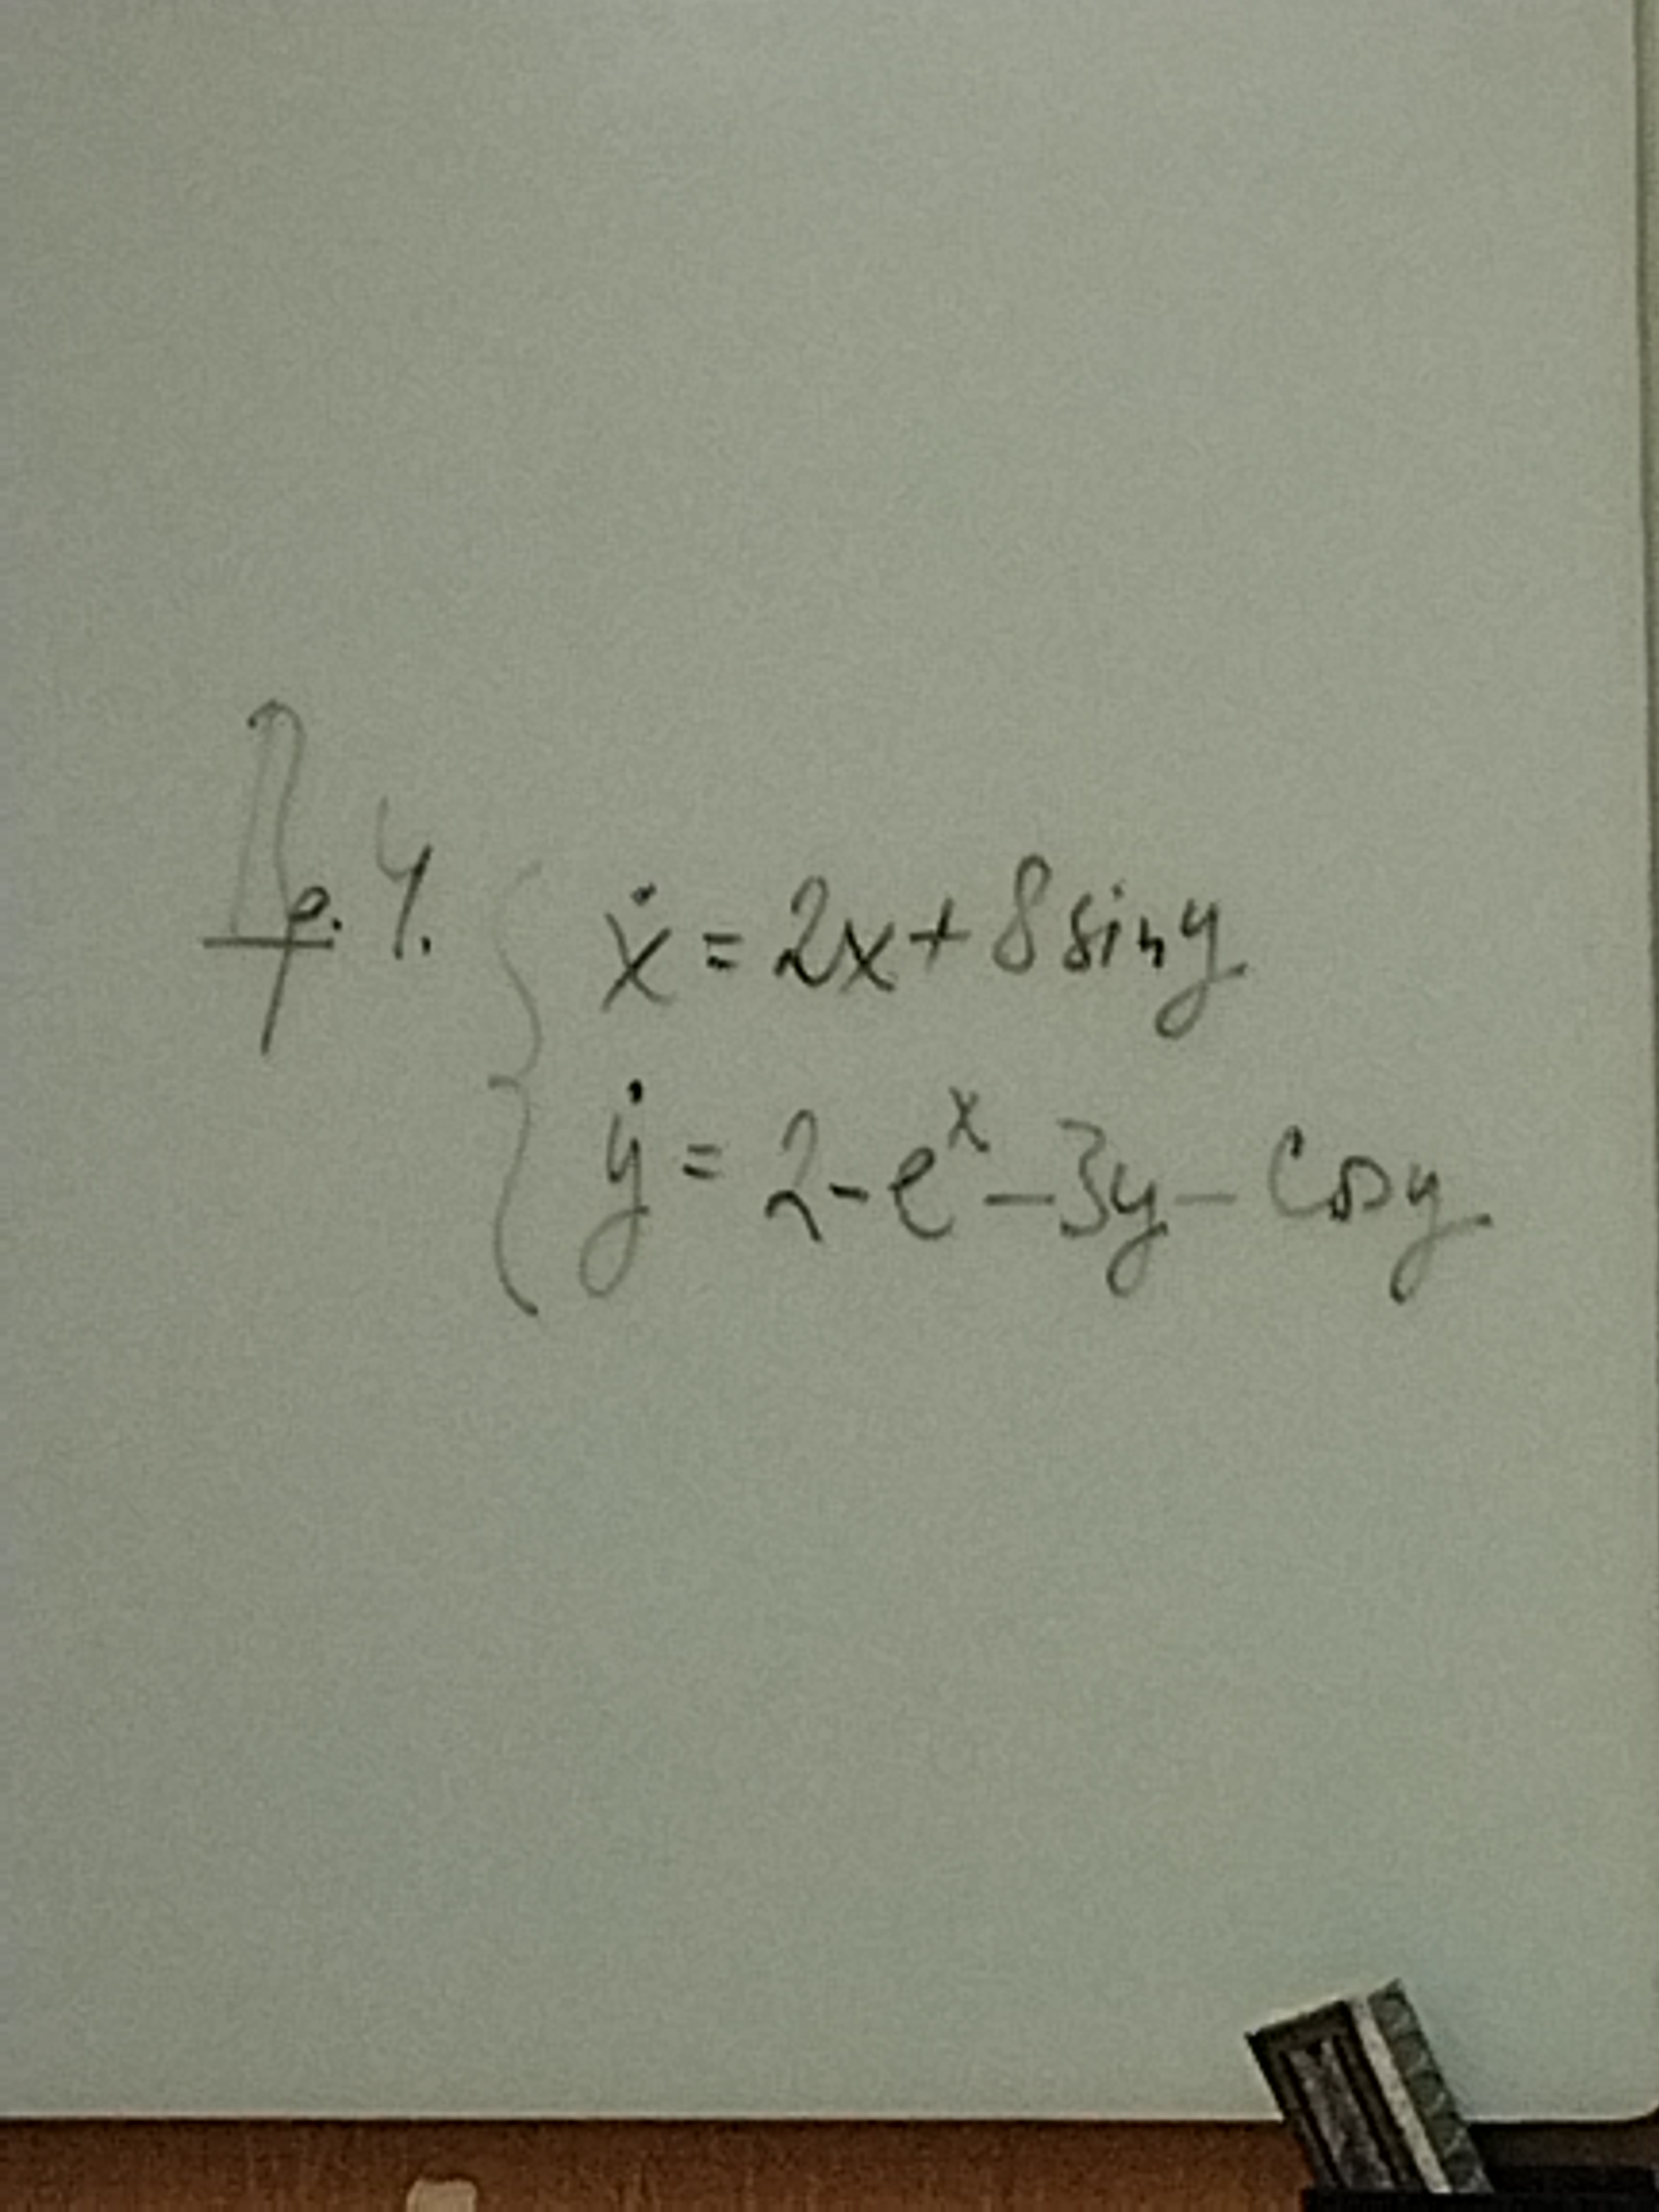 Пр. 4. { ẋ = 2x + 8 sin y
ẏ = 2 - eˣ - 3y - cos y